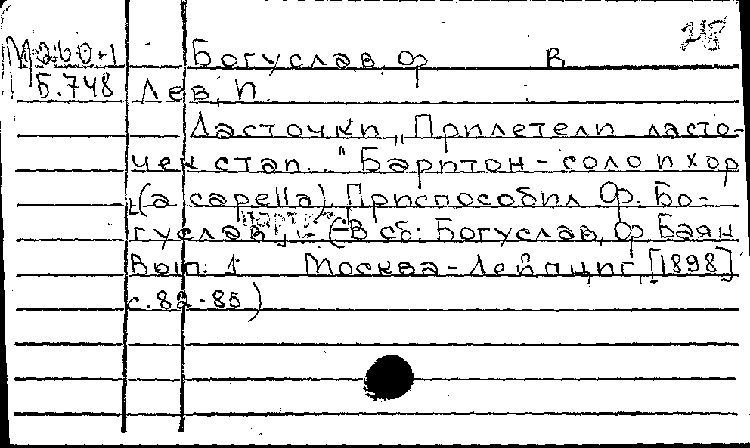 218
М260-1 Богуслав, Ф В
Б.748 Лев, П
Ласточки „Прилетели ласто-
чек стаи..." Баритон-соло и хор
(a capella) Приспособил Ф. Бо-
гуслав партит. - (В сб: Богуслав, Ф Баян
Вып. 1 Москва-Лейпциг, [1898]
с.82-85)